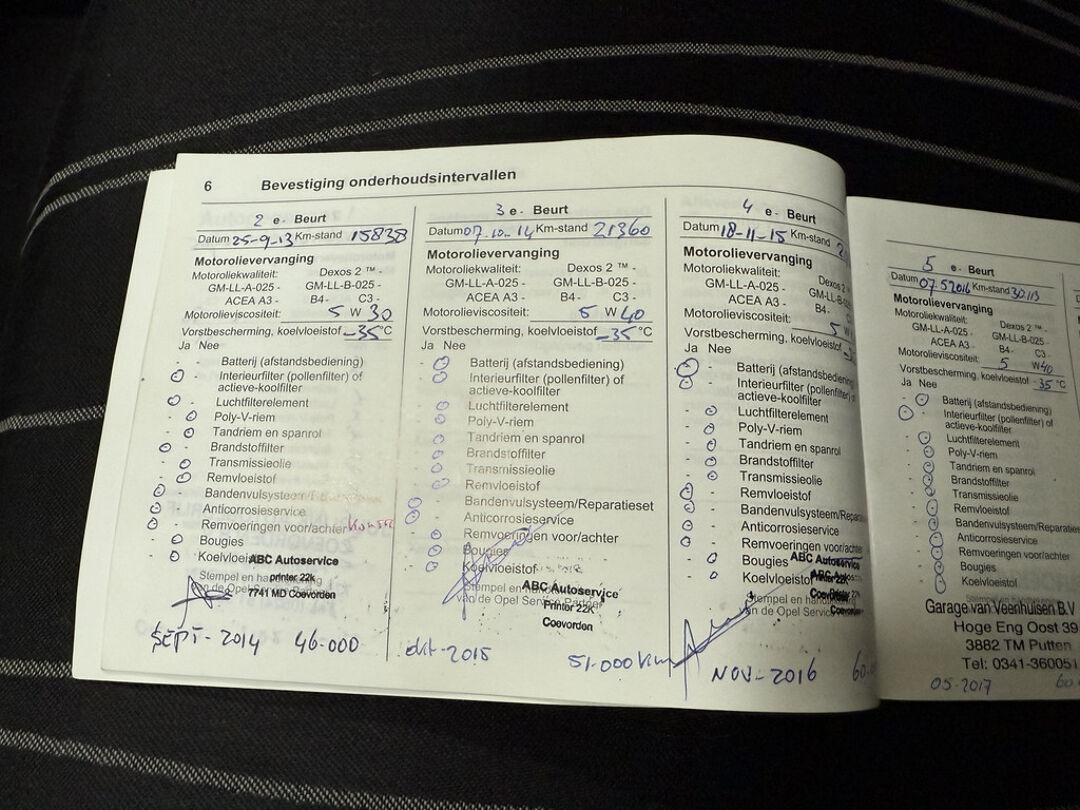 6 Bevestiging onderhoudsintervallen
2 e- Beurt
Datum 25-9-13 Km-stand 15838
Motorolievervanging
Motoroliekwaliteit: Dexos 2 ™ -
GM-LL-A-025 - GM-LL-B-025 -
ACEA A3 - B4- C3 -
Motorolieviscositeit: 5 W 30
Vorstbescherming, koelvloeistof -35 °C
Ja Nee
Batterij (afstandsbediening)
Interieurfilter (pollenfilter) of
actieve-koolfilter
Luchtfilterelement
Poly-V-riem
Tandriem en spanrol
Brandstoffilter
Transmissieolie
Remvloeistof
Bandenvulsysteem/
Anticorrosieservice
Remvoeringen voor/achter
Bougies
Koelvloeistof
ABC Autoservice
printer 22k
7741 MD Coevorden
Stempel en
van de Opel
SEPT- 2014 46.000
3 e- Beurt
Datum 07-10-14 Km-stand 21360
Motorolievervanging
Motoroliekwaliteit: Dexos 2 ™ -
GM-LL-A-025 - GM-LL-B-025 -
ACEA A3 - B4- C3 -
Motorolieviscositeit: 5 W 40
Vorstbescherming, koelvloeistof -35 °C
Ja Nee
Batterij (afstandsbediening)
Interieurfilter (pollenfilter) of
actieve-koolfilter
Luchtfilterelement
Poly-V-riem
Tandriem en spanrol
Brandstoffilter
Transmissieolie
Remvloeistof
Bandenvulsysteem/Reparatieset
Anticorrosieservice
Remvoeringen voor/achter
Bougies
Koelvloeistof
ABC Autoservice
Printer 22K
Coevorden
van de Opel Service
okt-2015 51.000 km
4 e- Beurt
Datum 18-11-15 Km-stand
Motorolievervanging
Motoroliekwaliteit: Dexos 2
GM-LL-A-025 - GM-LL-B-025
ACEA A3 - B4-
Motorolieviscositeit: 5 W
Vorstbescherming, koelvloeistof
Ja Nee
Batterij (afstandsbediening)
Interieurfilter (pollenfilter) of
actieve-koolfilter
Luchtfilterelement
Poly-V-riem
Tandriem en spanrol
Brandstoffilter
Transmissieolie
Remvloeistof
Bandenvulsysteem/
Anticorrosieservice
Remvoeringen voor/achter
Bougies
Koelvloeistof
ABC Autoservice
Printer 22k
Coevorden
Stempel en
van de Opel Service
NOV- 2016
5 e- Beurt
Datum 07.5 2016 Km-stand 30.113
Motorolievervanging
Motoroliekwaliteit: Dexos 2 ™ -
GM-LL-A-025 - GM-LL-B-025 -
ACEA A3 - B4- C3 -
Motorolieviscositeit: 5 W40
Vorstbescherming, koelvloeistof -35 °C
Ja Nee
Batterij (afstandsbediening)
Interieurfilter (pollenfilter) of
actieve-koolfilter
Luchtfilterelement
Poly-V-riem
Tandriem en spanrol
Brandstoffilter
Transmissieolie
Remvloeistof
Bandenvulsysteem/Reparatieset
Anticorrosieservice
Remvoeringen voor/achter
Bougies
Koelvloeistof
Garage van Veenhuisen B.V
Hoge Eng Oost 39
3882 TM Putten
Tel: 0341-360051
05-2017